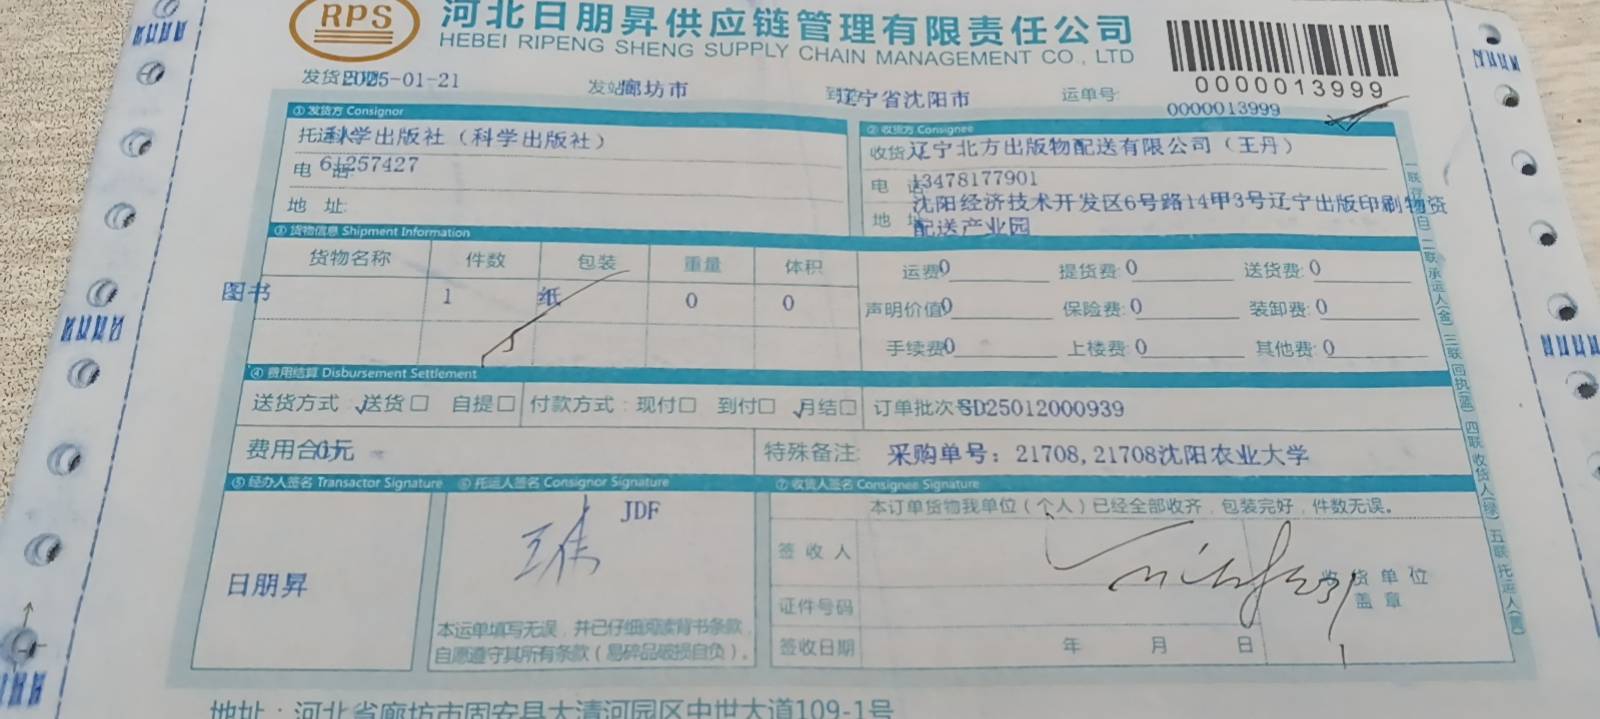 RPS
河北日朋昇供应链管理有限责任公司
HEBEI RIPENG SHENG SUPPLY CHAIN MANAGEMENT CO., LTD
0000013999
发货日期2025-01-21 发站廊坊市 到站辽宁省沈阳市 运单号 0000013999
① 发货方 Consignor
托运人科学出版社（科学出版社）
电 话 61257427
地 址:
② 收货方 Consignee
收货 辽宁北方出版物配送有限公司（王丹）
电 话 13478177901
地 址 沈阳经济技术开发区6号路14甲3号辽宁出版印刷物资
配送产业园
③ 货物信息 Shipment Information
货物名称 件数 包装 重量 体积
图书 1 纸 0 0
运费0 提货费:0 送货费:0
声明价值0 保险费:0 装卸费:0
手续费0 上楼费:0 其他费:0
④ 费用结算 Disbursement Settlement
送货方式：✓送货□ 自提□ 付款方式：现付□ 到付□ ✓月结□ 订单批次号SD25012000939
费用合计0元 特殊备注: 采购单号：21708,21708沈阳农业大学
⑤ 经办人签名 Transactor Signature ⑥ 托运人签名 Consignor Signature ⑦ 收货人签名 Consignee Signature
日朋昇
JDF
本运单填写无误，并已仔细阅读背书条款，
自愿遵守其所有条款（易碎品破损自负）。
本订单货物我单位（个人）已经全部收齐，包装完好，件数无误。
签 收 人
收 货 单 位
盖 章
证件号码
签收日期 年 月 日
一联存根(白) 二联承运人(金) 三联回执(蓝) 四联收货人(绿) 五联托运人(黄)
地址：河北省廊坊市固安县大清河园区中世大道109-1号